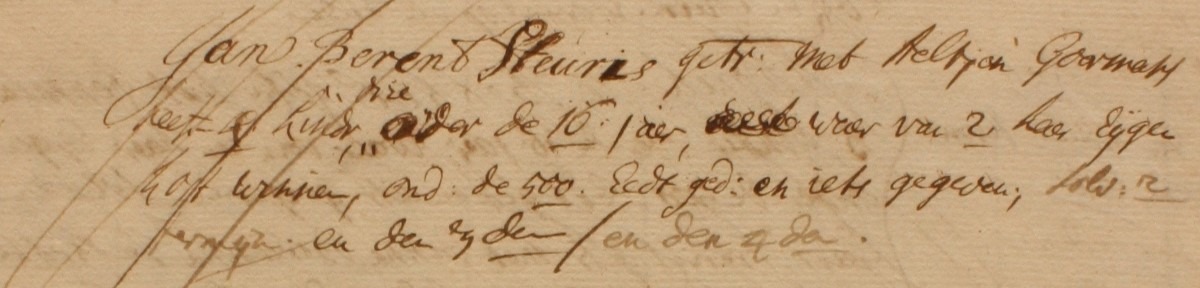 Jan Berent Steuris getr: met Aeltjen Goormans
heeft 4 kinder, onder de 16 jaer, waer van 2 haer Eijgen
kost winnen, ond: de 500. Eedt ged: en iets gegeven, solv: 2
termijn. en den 3 den / en den 4 den.